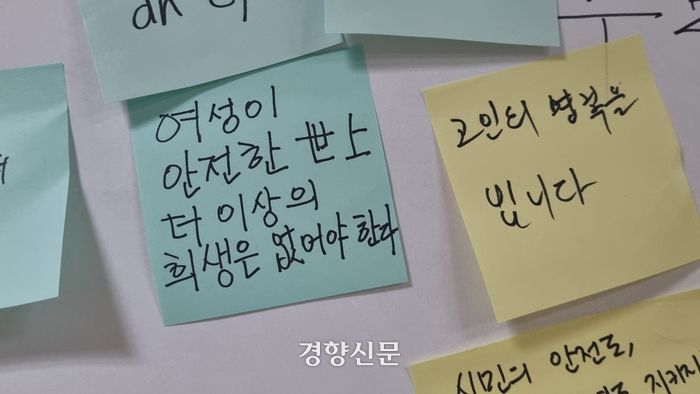 여성이
안전한 世上
더 이상의
희생은 없어야 한다
고인의 명복을
빕니다
경향신문
시민의 안전도,
지키지